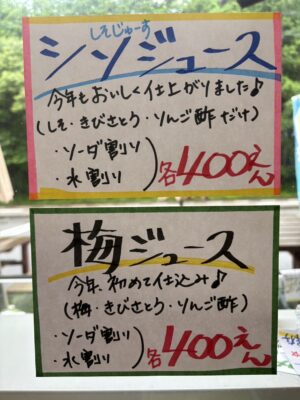 しそじゅーす
シソジュース
今年もおいしく仕上がりました♪
(しそ・きびさとう・りんご酢だけ)
・ソーダ割り
・水割り
各400えん
梅ジュース
今年、初めて仕込み♪
(梅・きびさとう・りんご酢)
・ソーダ割り
・水割り
各400えん